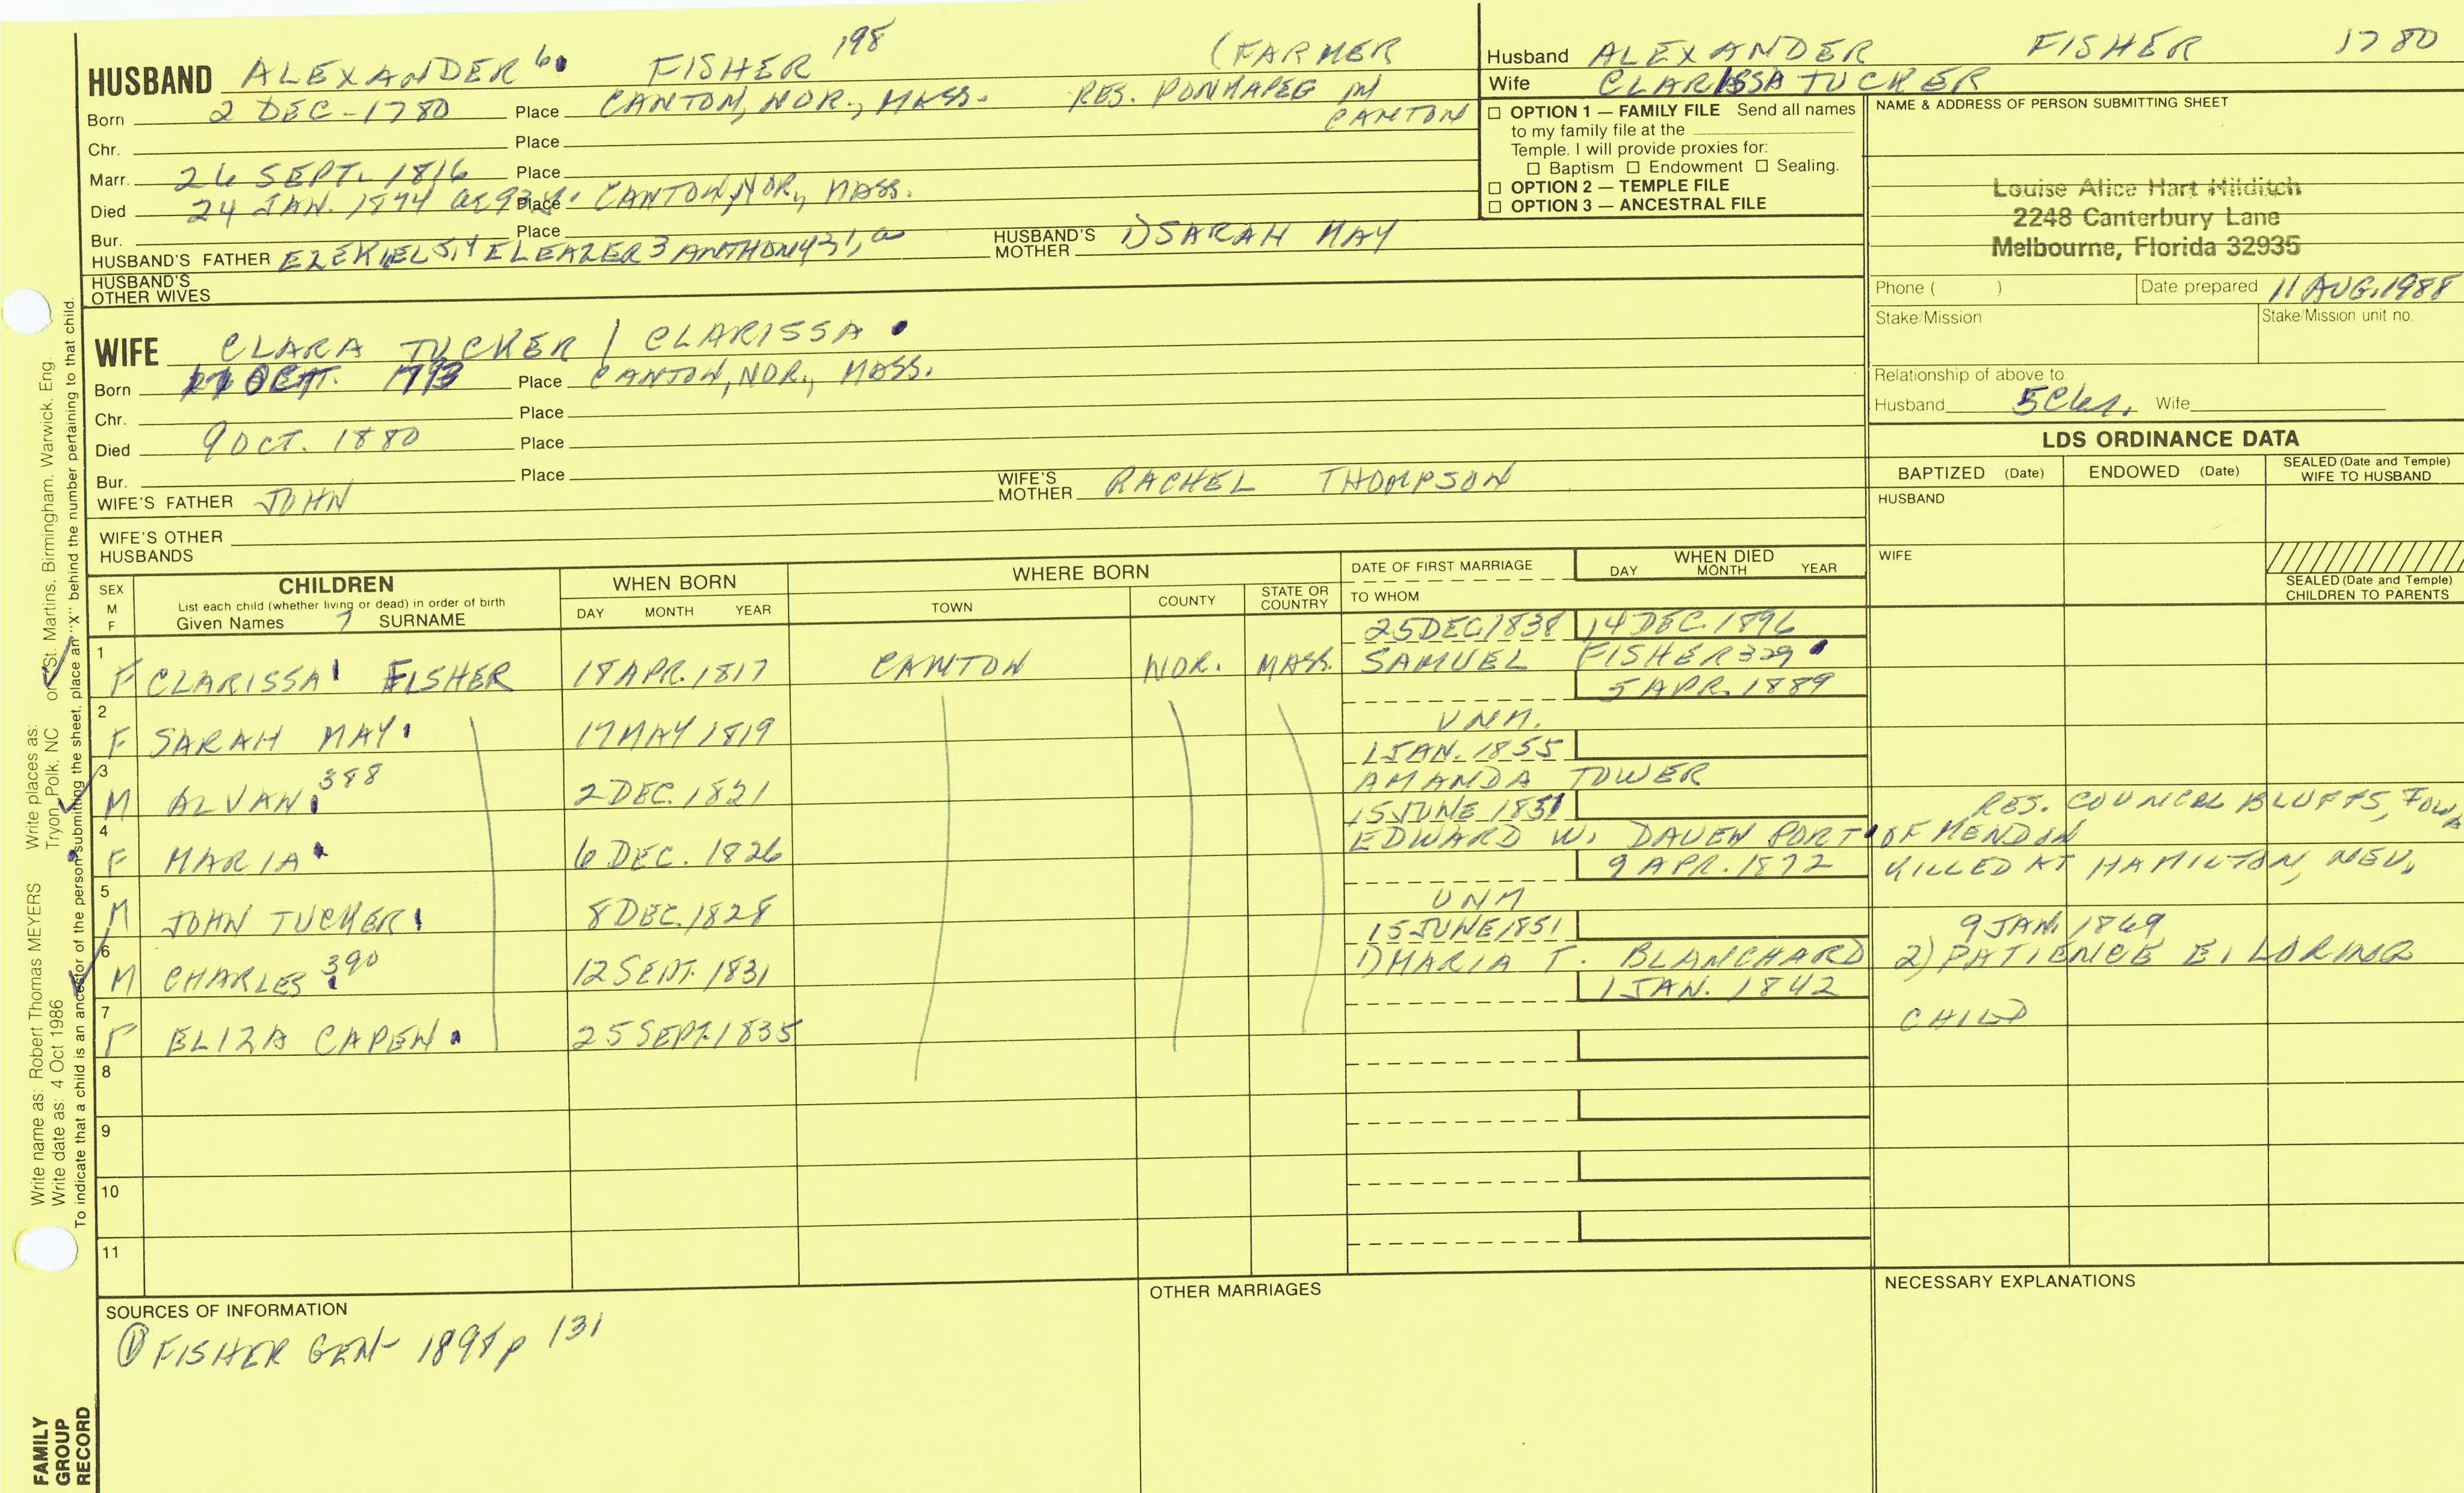 HUSBAND ALEXANDER 6 FISHER 198 (FARMER
Born 2 DEC-1780 Place CANTON, NOR., MASS. RES. PONKAPEG IN
CANTON
Chr. Place
Marr. 26 SEPT. 1816 Place
Died 24 JAN. 1874 ae 93y. Place CANTON, NOR., MASS.
Bur. Place
HUSBAND'S FATHER EZEKIEL 5, 4 ELEAZER 3 ANTHONY 3, HUSBAND'S MOTHER 1) SARAH MAY
HUSBAND'S OTHER WIVES
WIFE CLARA TUCKER / CLARISSA
Born OCT. 1793 Place CANTON, NOR., MASS.
Chr. Place
Died 9 OCT. 1880 Place
Bur. Place
WIFE'S FATHER JOHN WIFE'S MOTHER RACHEL THOMPSON
WIFE'S OTHER HUSBANDS
Husband ALEXANDER FISHER 1780
Wife CLARISSA TUCKER
☐ OPTION 1 — FAMILY FILE Send all names
to my family file at the
Temple. I will provide proxies for:
☐ Baptism ☐ Endowment ☐ Sealing.
☐ OPTION 2 — TEMPLE FILE
☐ OPTION 3 — ANCESTRAL FILE
NAME & ADDRESS OF PERSON SUBMITTING SHEET
Louise Alice Hart Hilditch
2248 Canterbury Lane
Melbourne, Florida 32935
Phone ( ) Date prepared 11 AUG. 1988
Stake/Mission Stake/Mission unit no.
Relationship of above to
Husband 5C Wife
LDS ORDINANCE DATA
BAPTIZED (Date) ENDOWED (Date) SEALED (Date and Temple) WIFE TO HUSBAND
HUSBAND
WIFE
SEALED (Date and Temple) CHILDREN TO PARENTS
SEX M F
CHILDREN
List each child (whether living or dead) in order of birth
Given Names 7 SURNAME
WHEN BORN
DAY MONTH YEAR
WHERE BORN
TOWN COUNTY STATE OR COUNTRY
DATE OF FIRST MARRIAGE
TO WHOM
WHEN DIED
DAY MONTH YEAR
25 DEC 1838 14 DEC. 1896
1 F CLARISSA FISHER 18 APR. 1817 CANTON NOR. MASS. SAMUEL FISHER 329
5 APR. 1889
2 F SARAH MAY 17 MAY 1819 UNM.
1 JAN. 1855
3 M ALVAN 388 2 DEC. 1821 AMANDA TOWER
15 JUNE 1851 RES. COUNCEL BLUFFS, IOWA
4 F MARIA 6 DEC. 1826 EDWARD W. DAVENPORT OF MENDON
9 APR. 1872 KILLED AT HAMILTON, NEV.
5 M JOHN TUCKER 8 DEC. 1828 UNM
15 JUNE 1851 9 JAN. 1869
6 M CHARLES 390 12 SEPT. 1831 1) MARIA T. BLANCHARD 2) PATIENCE E. LORING
1 JAN. 1842
7 F ELIZA CAPEN 25 SEPT. 1835 CHILD
8
9
10
11
SOURCES OF INFORMATION
① FISHER GEN- 1898 p 131
OTHER MARRIAGES
NECESSARY EXPLANATIONS
Write name as: Robert Thomas MEYERS Write places as:
Write date as: 4 Oct 1986 Tryon, Polk, NC or St. Martins, Birmingham, Warwick, Eng.
To indicate that a child is an ancestor of the person submitting the sheet, place an "X" behind the number pertaining to that child.
FAMILY
GROUP
RECORD